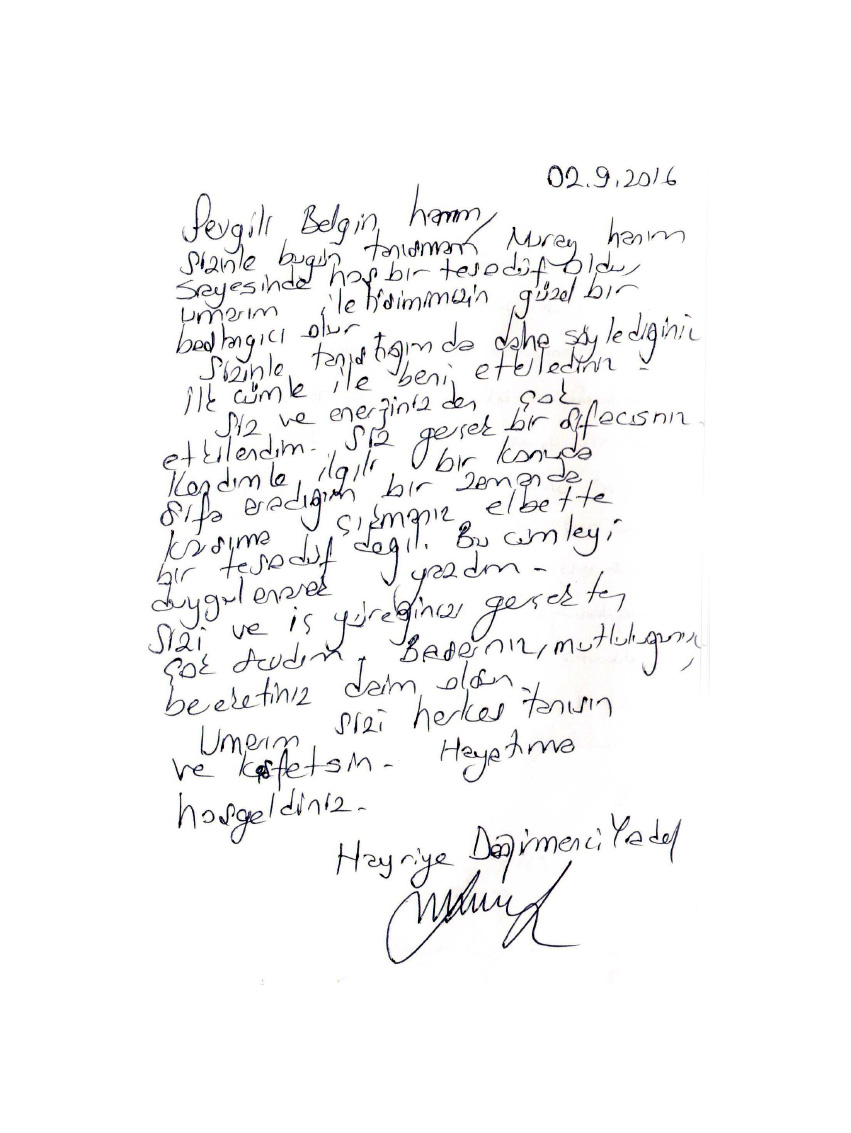 02.9.2016
Sevgili Belgin hanım,
Sizinle bugün tanışmam Nuray hanım
sayesinde hoş bir tesadüf oldu,
umarım iletişimimizin güzel bir
başlangıcı olur
Sizinle tanıştığımda daha söylediğiniz
ilk cümle ile beni etkilediniz -
Siz ve enerjinizden çok
etkilendim. Siz gerçek bir şifacısınız.
Kendimle ilgili bir konuda
şifa aradığım bir zamanda
karşıma çıkmanız elbette
bir tesadüf değil. Bu cümleyi
duygulanarak yazdım -
Sizi ve iş yüreğinizi gerçekten
çok sevdim. Başarınız, mutluluğunuz,
bereketiniz daim olsun.
Umarım sizi herkes tanısın
ve keşfetsin - Hayatıma
hoşgeldiniz -
Hayriye Değirmenci